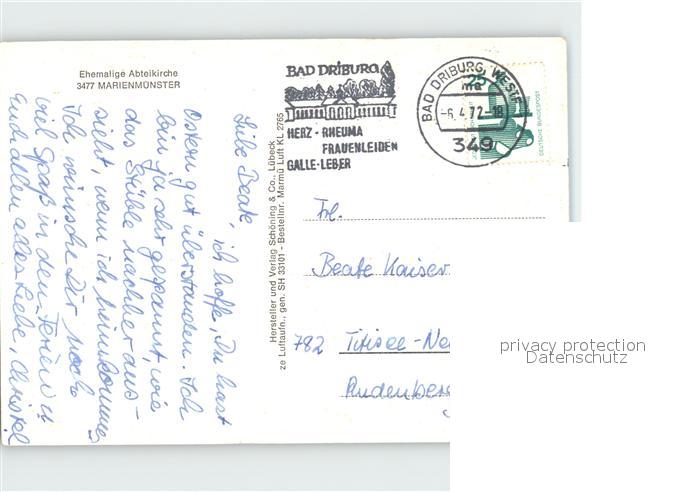 Ehemalige Abteikirche
3477 MARIENMÜNSTER
Liebe Beate, ich hoffe, Du hast
Ostern gut überstanden. Ich
bin ja sehr gespannt, wie
das Stüble nachher aus-
sieht, wenn ich heimkomme.
Ich wünsche Dir noch
viel Spaß in den Ferien u.
Euch allen alles Liebe, Christel
Hersteller und Verlag Schöning & Co., Lübeck
ze Luftaufn., gen. SH 33101 - Bestellnr. Marmü Luft KL 2765
BAD DRIBURG
HERZ - RHEUMA
FRAUENLEIDEN
GALLE-LEBER
BAD DRIBURG, WESTF
ma
-6.4.72-18
349
25
DEUTSCHE BUNDESPOST
Frl.
Beate Kaiser
782 Titisee-Ne
privacy protection
Datenschutz